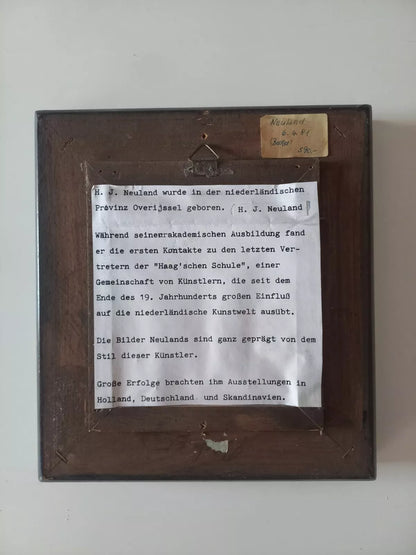 Neuland
6.4.81
590.-
H. J. Neuland wurde in der niederländischen
Provinz Overijssel geboren. (H. J. Neuland)
Während seinemrakademischen Ausbildung fand
er die ersten Kontakte zu den letzten Ver-
tretern der "Haag'schen Schule", einer
Gemeinschaft von Künstlern, die seit dem
Ende des 19. Jahrhunderts großen Einfluß
auf die niederländische Kunstwelt ausübt.
Die Bilder Neulands sind ganz geprägt von dem
Stil dieser Künstler.
Große Erfolge brachten ihm Ausstellungen in
Holland, Deutschland und Skandinavien.